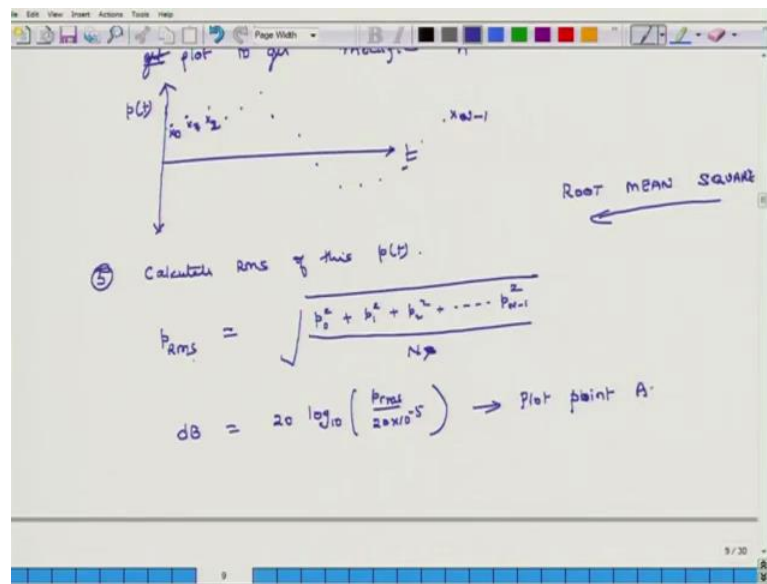 File Edit View Insert Actions Tools Help
Page Width
plot to get
p(t)
x0 x1 x2 . xN-1
t
ROOT MEAN SQUARE
⑤ Calculate RMS of this p(t).
pRMS = √((p0² + p1² + p2² + ---- pN-1²) / N)
dB = 20 log10 (prms / 20x10^-5) → Plot point A.
9/30
9